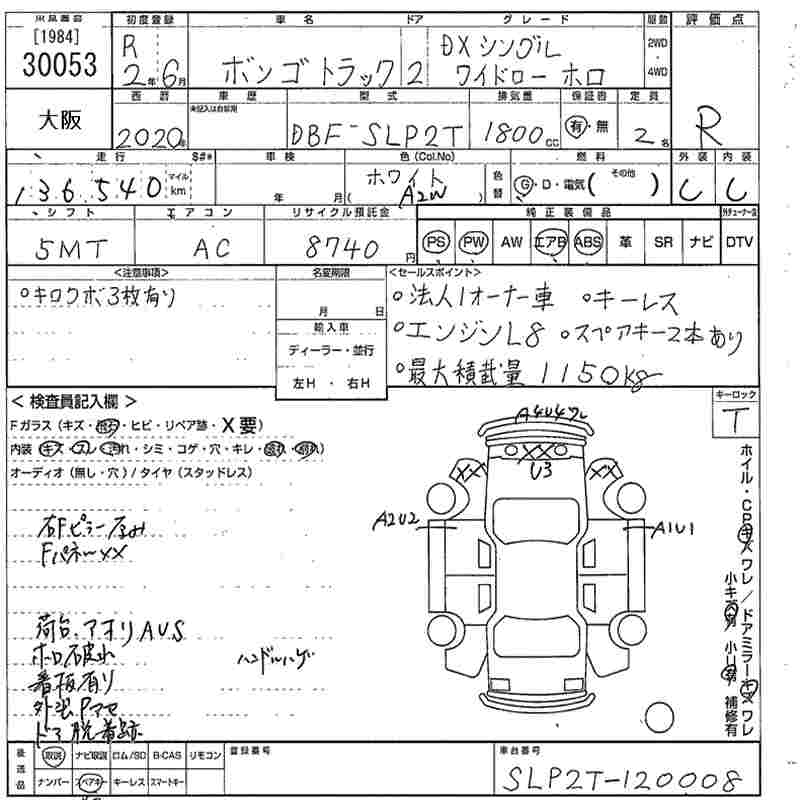 [1984]
30053
初度登録
R
2年6月
車名
ボンゴトラック
ドア
2
グレード
DXシングル
ワイドロー ホロ
駆動
2WD
4WD
評価点
R
大阪
西暦
2020年
車歴
未記入は自家用
型式
DBF-SLP2T
排気量
1800cc
保証書
有・無
定員
2名
走行
S#*
136,540
マイル
km
車検
年 月
色(Col.No)
ホワイト
(A2W)
色替
燃料
G・D・電気( その他 )
外装
C
内装
C
シフト
5MT
エアコン
AC
リサイクル預託金
8740円
純正装備品
PS PW AW エアB ABS 革 SR ナビ DTV
<注意事項>
○キロクボ3枚有り
名変期限
月 日
輸入車
ディーラー・並行
左H・右H
<セールスポイント>
○法人1オーナー車 ○キーレス
○エンジンL8 ○スペアキー2本あり
○最大積載量 1150kg
キーロック
T
<検査員記入欄>
Fガラス(キズ・飛石・ヒビ・リペア跡・X要)
内装(キズ・スレ・汚れ・シミ・コゲ・穴・キレ・破れ・割れ)
オーディオ(無し・穴)/タイヤ(スタッドレス)
右Fピラー歪み
FパネルXX
荷台、アオリAUS
ホロ破れ
看板有り
外装Pマセ
ドア脱着跡
ハンドルハゲ
A4U4ワレ
XX
U3
XX
XX
A2U2
A1U1
ホイル・CPキズワレ/ドアミラーキズワレ
補修有
後送品
取説 ナビ取説 ロム/SD B-CAS リモコン
ナンバー スペアキー キーレス スマートキー
登録番号
車台番号
SLP2T-120008